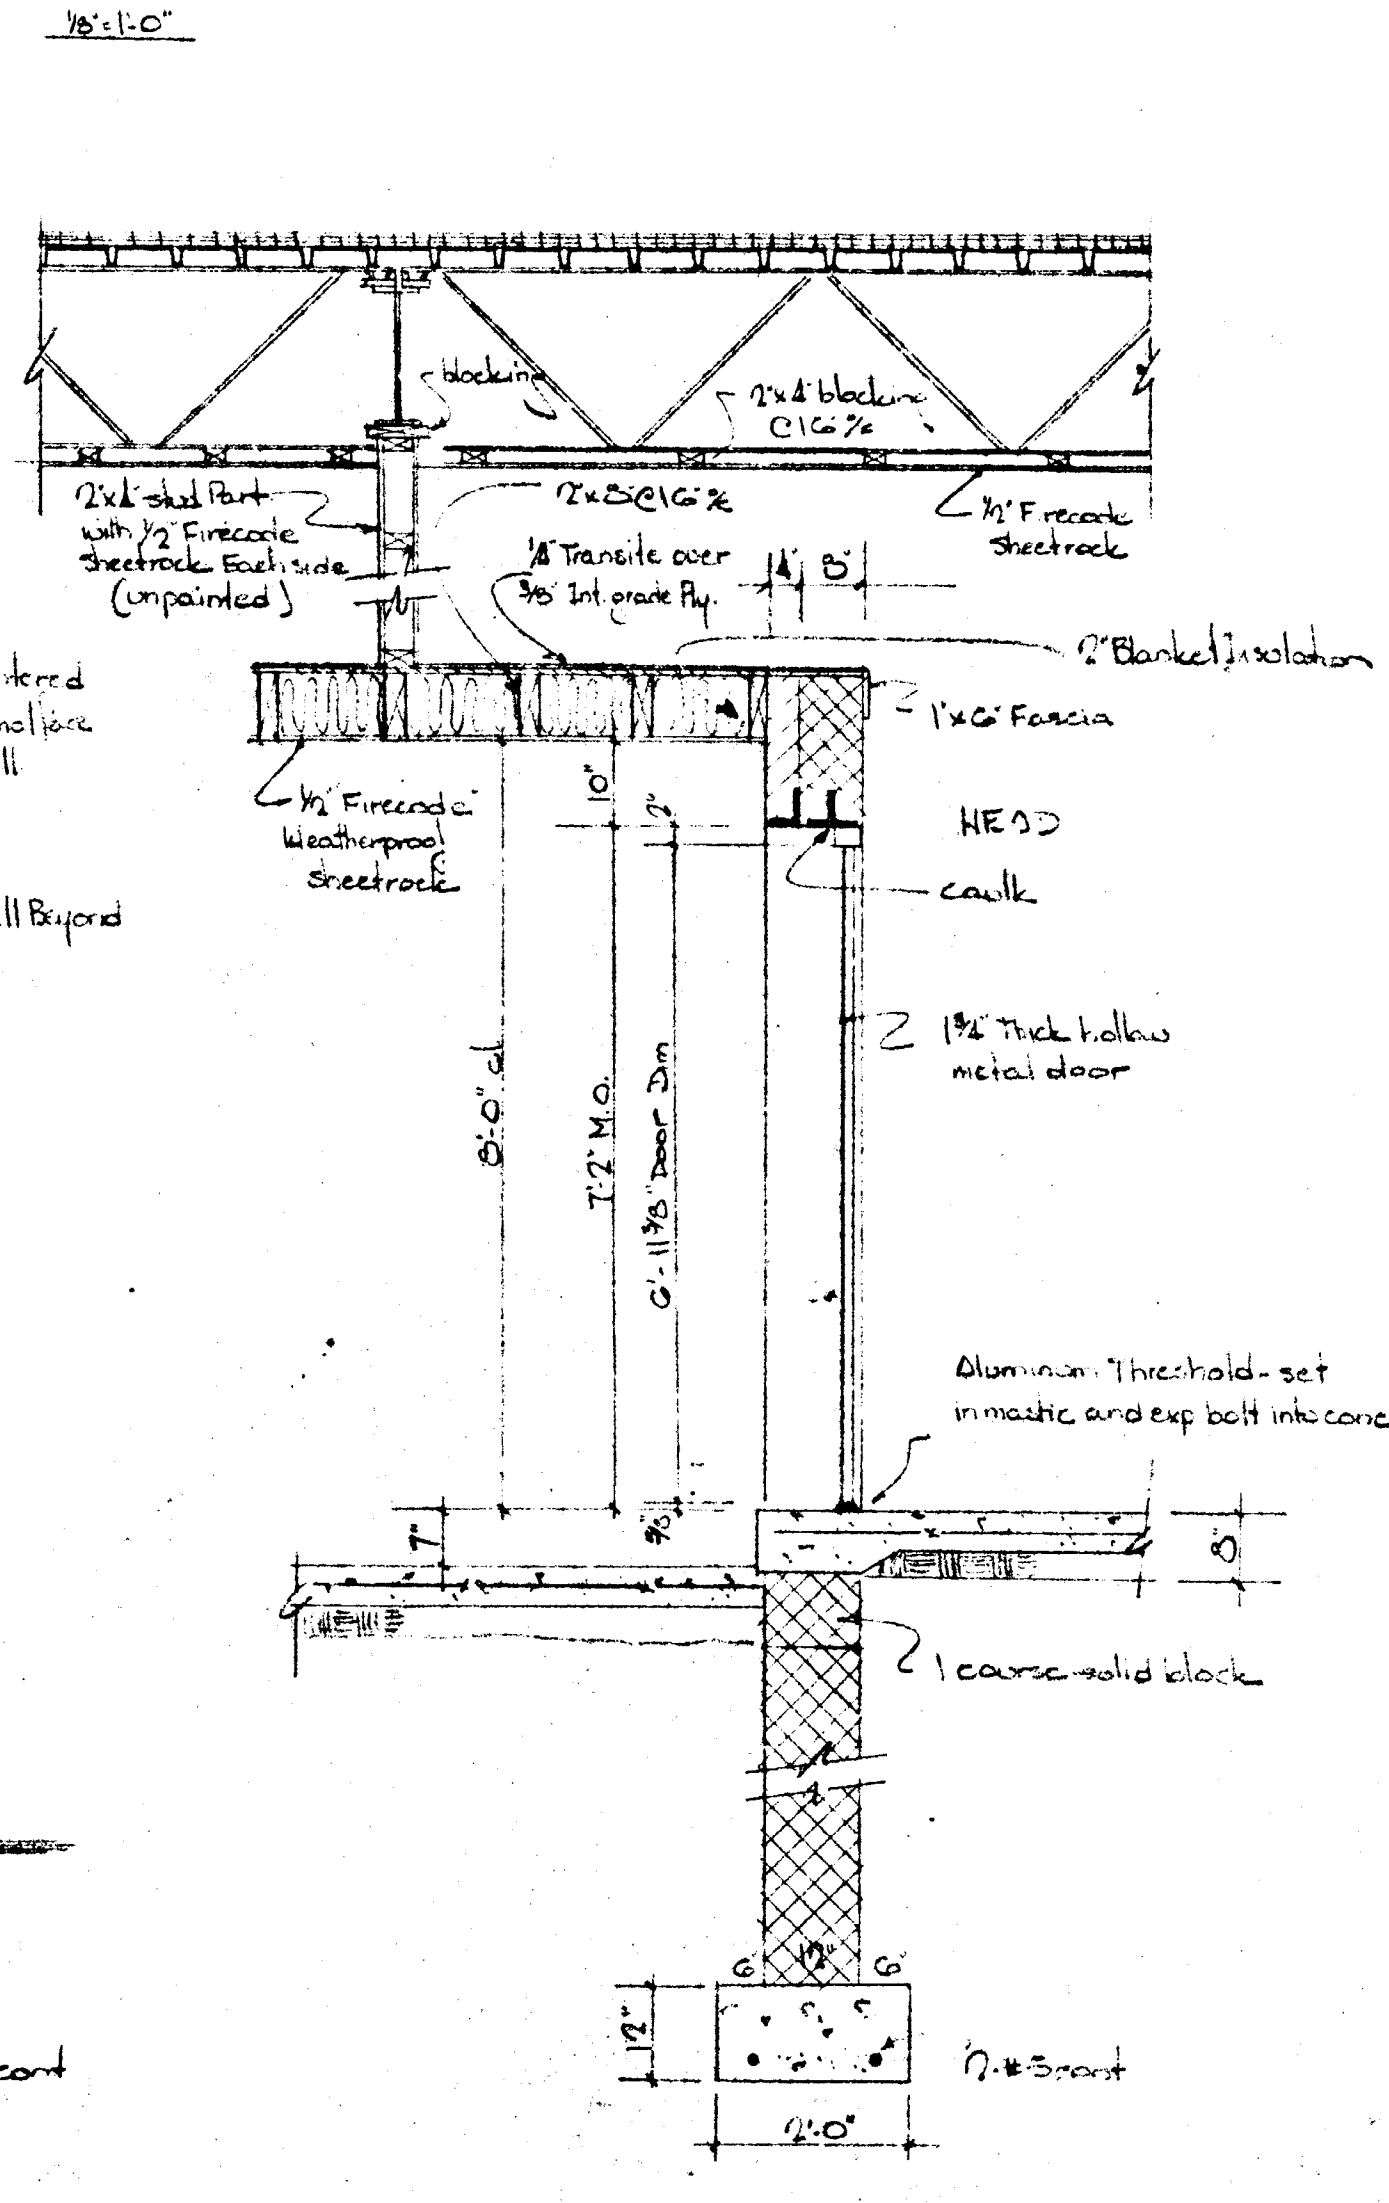 1/8"=1'-0"
blocking
2"x4" blocking
@16 o/c
2"x4" stud Part
with 1/2" Firecode
sheetrock Each side
(unpainted)
2"x8"@16" o/c
1/2" Firecode
sheetrock
1/4" Transite over
3/8" Int. grade Ply.
4" 8"
2" Blanket Insulation
1"x6" Fascia
1/2" Firecode
Weatherproof
sheetrock
10"
2"
HEAD
caulk
ll Beyond
1 3/4" Thick hollow
metal door
8'-0" cl
7'-2" M.O.
6'-11 3/8" Door Dim
Aluminum Threshold - set
in mastic and exp bolt into conc
7"
5/8"
8"
1 course solid block
6" 12" 6"
12"
2-#5 cont
cont
2'-0"